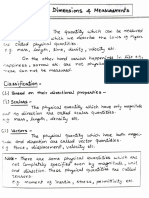 Dimensions & Measurements
The quantity which can be measured
which we describe the laws of
are called physical quantities.
e.g. mass, length, time, density, velocity etc.
On the other hand various happenings in life e.g.
happiness, sorrow etc. are not physical quantities
can not be measured.
Classification -
(1) Based on their directional properties -
(i) Scalars -
The physical quantities which have only magnitude
not no direction are called scalar quantities.
e.g. mass, length, density etc.
(ii) Vectors -
The physical quantities which have both mag-
nitude and direction are called vector quantities.
e.g. displacement, velocity etc.
Note - There are some physical quantities which are
not completely specified even by magnitude,
unit and direction, are called tensors.
e.g. moment of inertia, stress, permittivity etc.